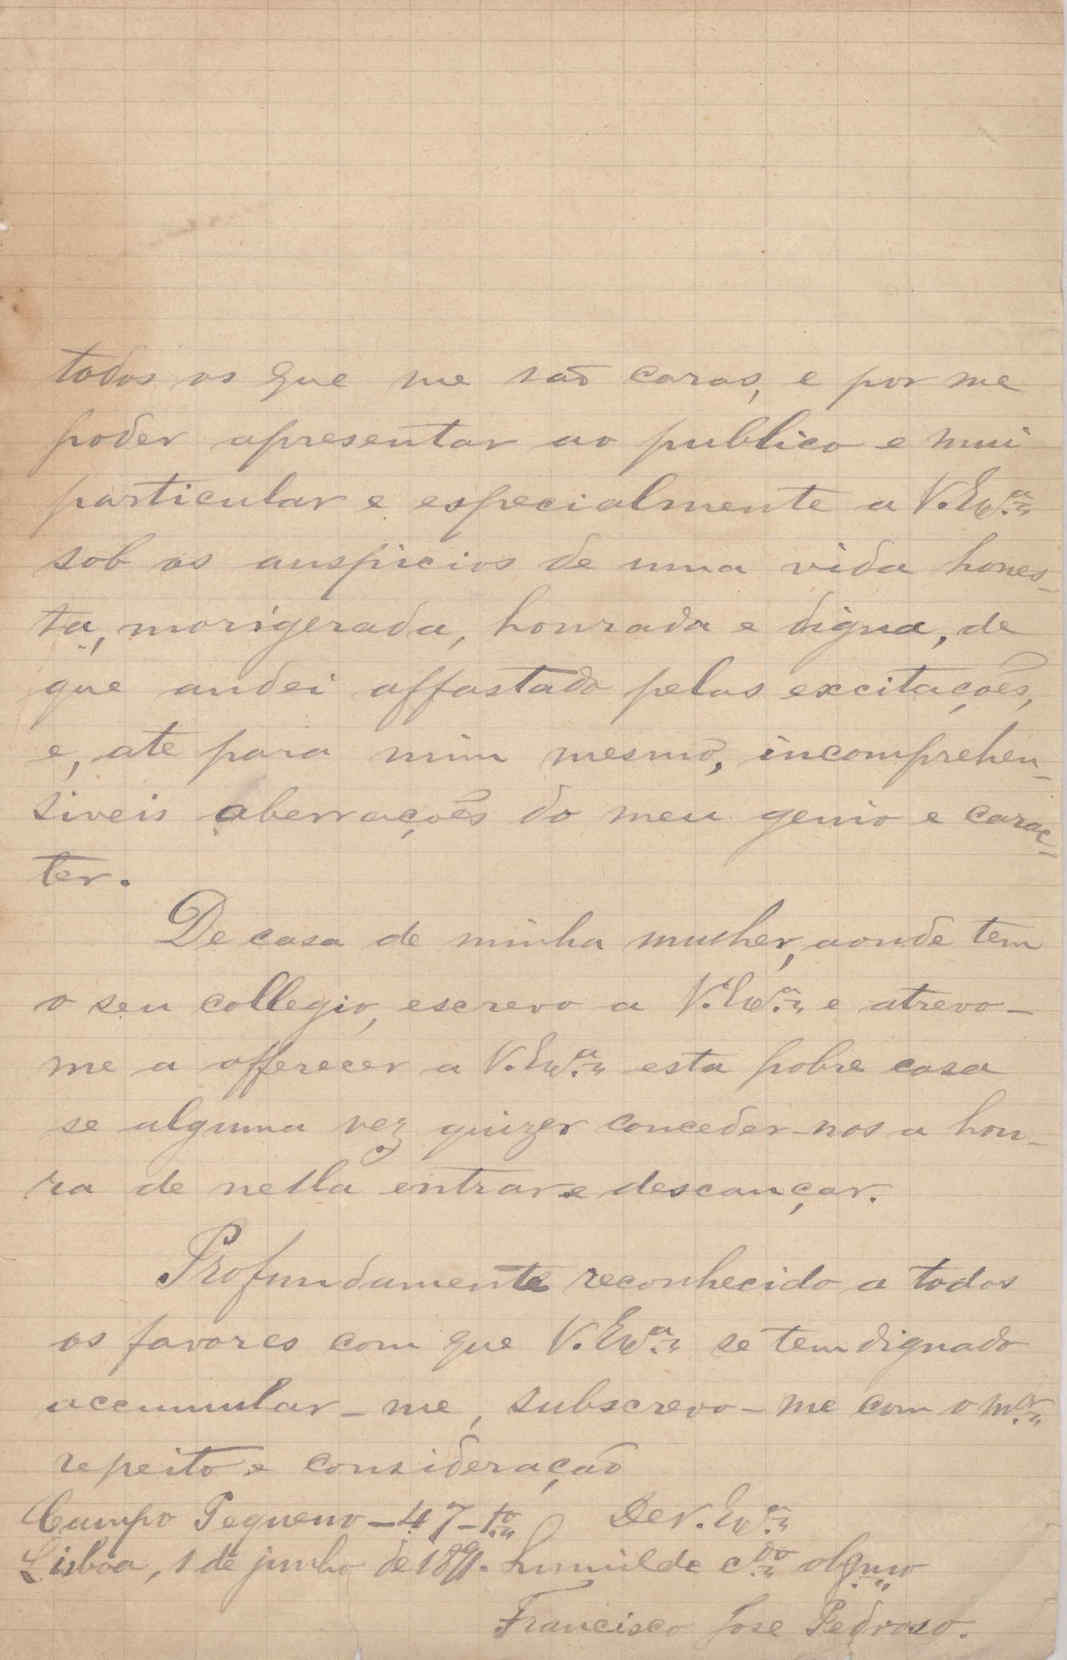 todos os que me são caros, e por me
poder apresentar ao publico e mui
particular e especialmente a V. Exª.
sob os auspicios de uma vida hones-
ta, morigerada, honrada e digna, de
que andei affastado pelas excitações,
e, ate para mim mesmo, incomprehen-
siveis aberrações do meu genio e carac-
ter.
De casa de minha mulher, aonde tem
o seu collegio, escrevo a V. Exª. e atrevo-
me a offerecer a V. Exª. esta pobre casa
se alguma vez quizer conceder-nos a hon-
ra de nella entrar e descançar.
Profundamente reconhecido a todos
os favores com que V. Exª. se tem dignado
accumular-me, subscrevo-me com o mor.
repeito e consideração
Campo Pequeno - 47 - 1.º De V. Exª.
Lisboa, 1 de junho de 1891. humilde c.do obgmo
Francisco Jose Pedroso.